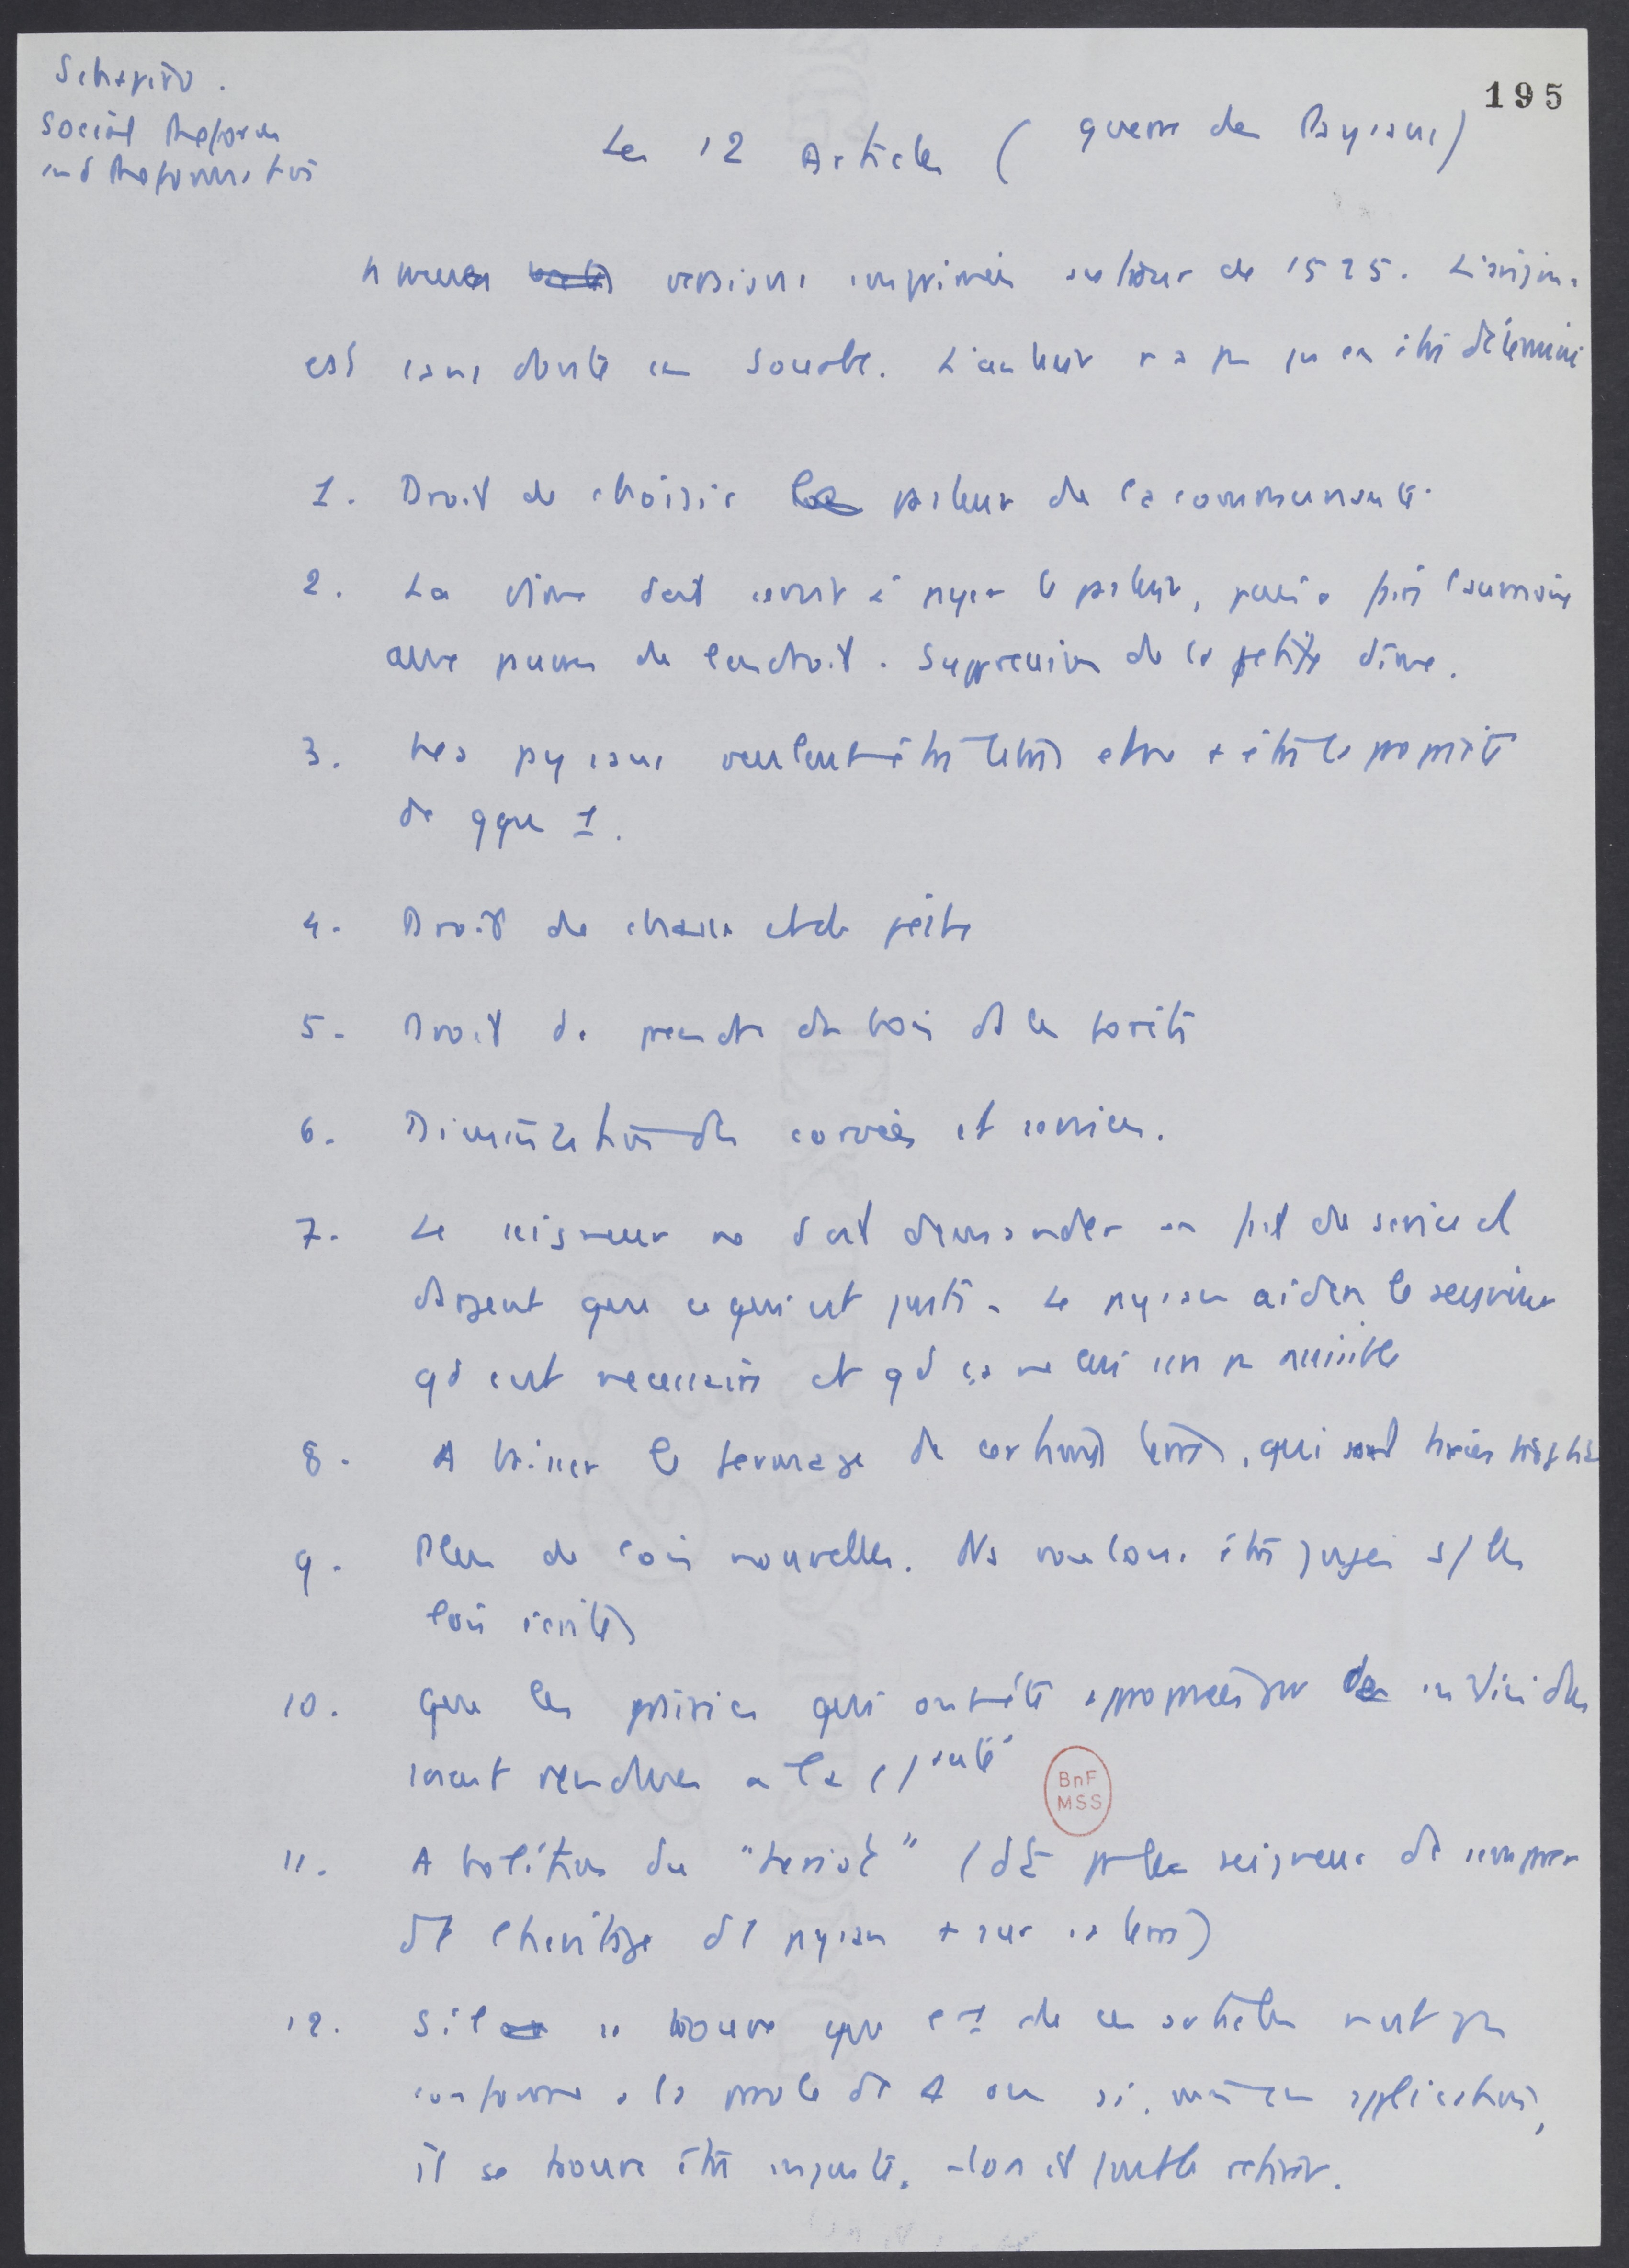 Schapiro.
Social Reform
and Reformation
195
Les 12 Articles (guerre des Paysans)
versions imprimées autour de 1525. L'origine
est sans doute en Souabe. L'auteur n'a pu être déterminé
1. Droit de choisir le pasteur de la communauté.
2. La dîme doit servir à payer le pasteur, puis à faire l'aumône
aux pauvres de l'endroit. Suppression de la petite dîme.
3. Les paysans veulent être libres et ne + être la propriété
de qqu 1.
4. Droit de chasse et de pêche
5. Droit de prendre du bois ds les forêts
6. Diminution des corvées et services.
7. Le seigneur ne doit demander en fait de service et
d'argent que ce qui est juste. Le paysan aidera le seigneur
qd c'est nécessaire et qd ça ne lui sera pas nuisible
8. Abaisser le fermage de certaines terres, qui sont
9. Plus de lois nouvelles. Ns voulons être jugés s/ les
lois écrites
10. Que les prairies qui ont été appropriées par des individus
soient rendues à la c/auté
BnF
MSS
11. Abolition du "heriot" (dt pr les seigneurs de
l'héritage paysan sur sa terre)
12. S'il se trouve que 1 de ces articles n'est pas
conforme à la parole de Δ ou si, mis en application,
il se trouve être injuste, alors il faut le retirer.